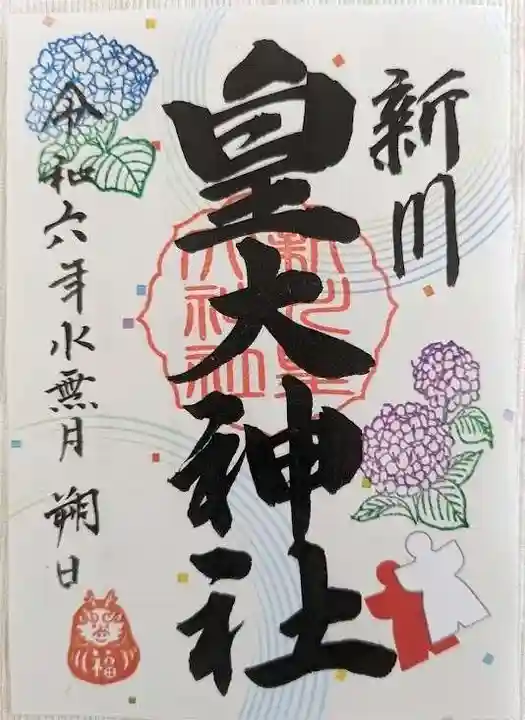 新川
皇大神社
令和六年水無月 朔日
新川皇
大神社
福